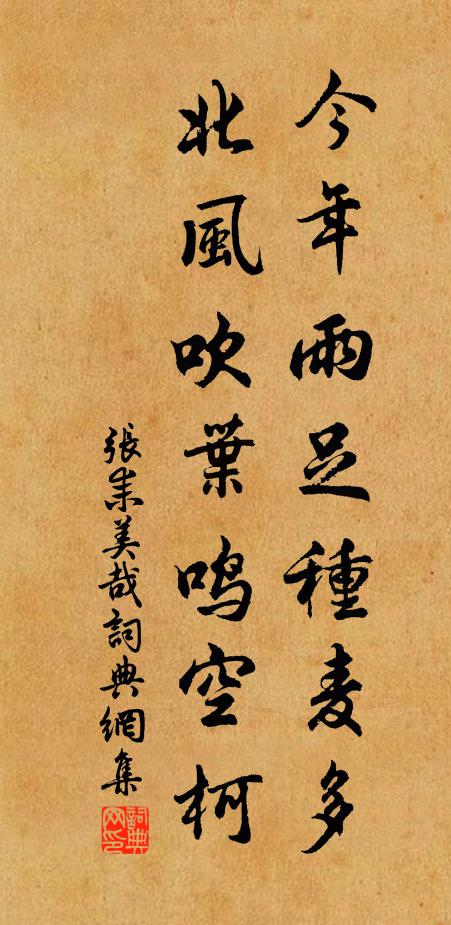 今年雨足種麦多
北風吹葉鳴空柯
張耒美哉詞典網集
詞典網印